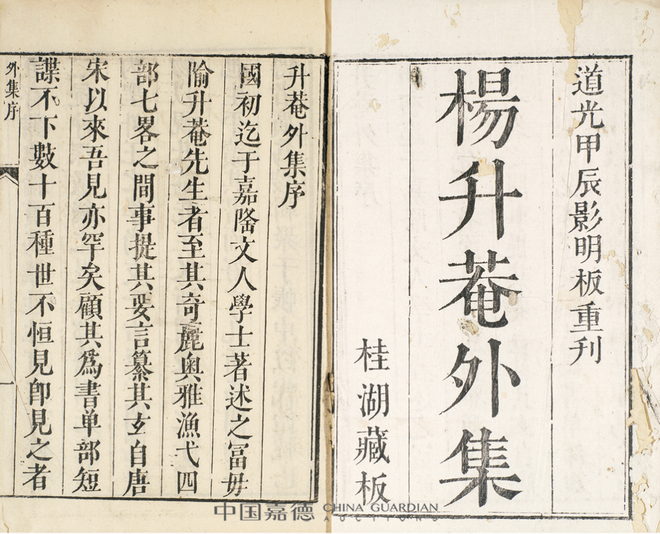 道光甲辰影明板重刊
楊升菴外集
桂湖藏板
升菴外集序
國初迄于嘉隆文人學士著述之富毋
隃升菴先生者至其奇麗奥雅漁弋四
部七畧之間事提其要言纂其玄自唐
宋以來吾見亦罕矣顧其爲書单部短
諜不下數十百種世不恒見卽見之者
外集序
中国嘉德 CHINA GUARDIAN
AUCTIONS